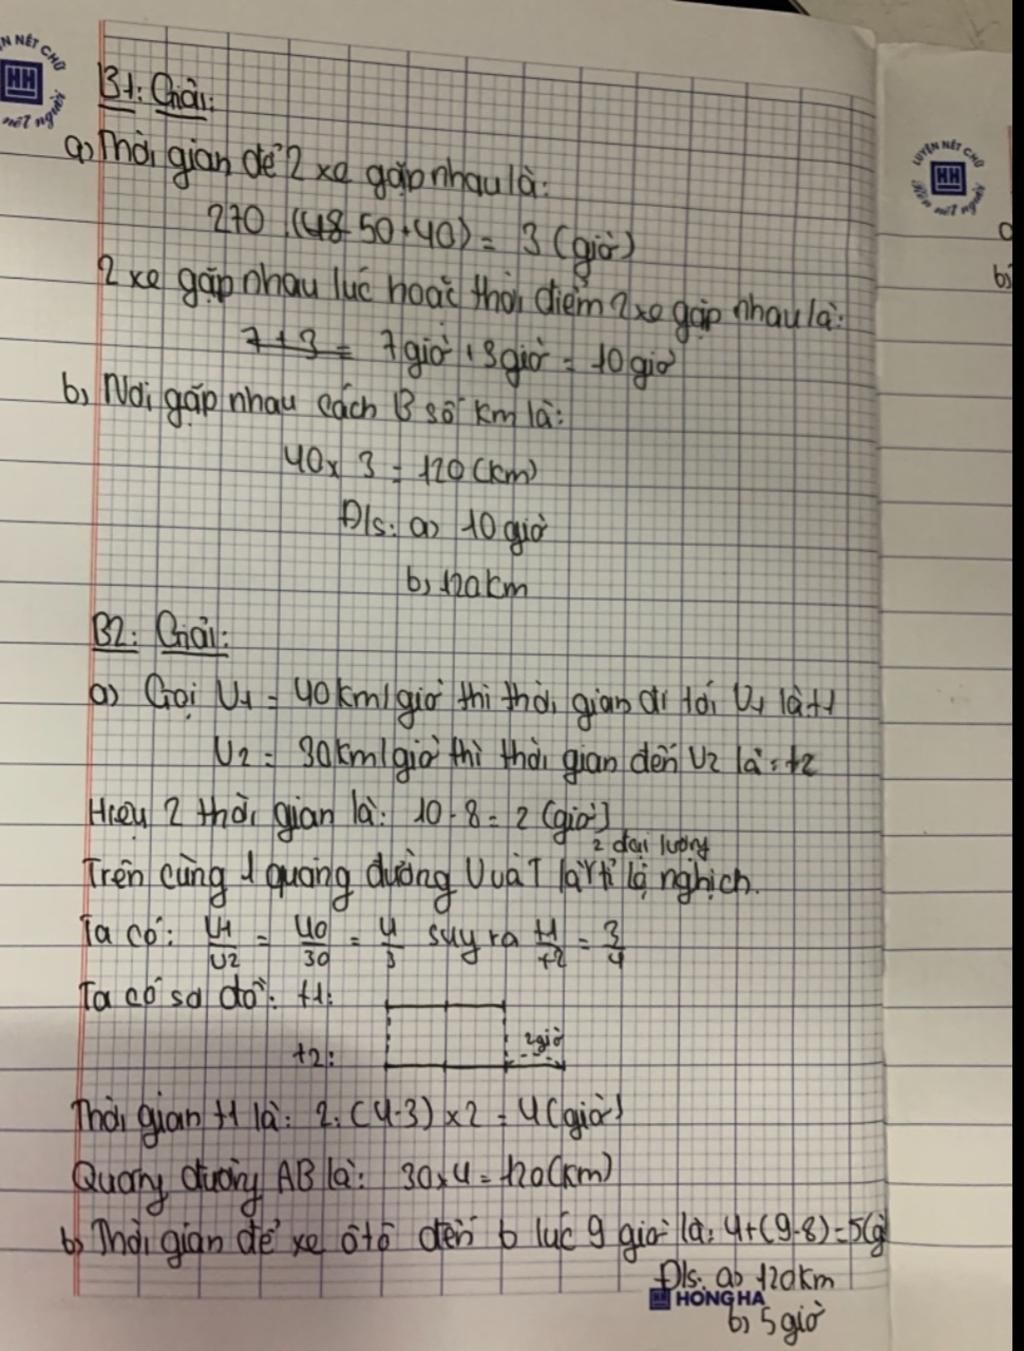 N NÉT CHỮ
HH
nết người
LUYỆN NÉT CHỮ
HH
Rèn nết người
B1: Giải:
a) Thời gian để 2 xe gặp nhau là:
270 : (50+40) = 3 (giờ)
2 xe gặp nhau lúc hoặc thời điểm 2 xe gặp nhau là:
7+3 = 7giờ + 3giờ = 10 giờ
b) Nơi gặp nhau cách B số km là:
40 x 3 = 120 (km)
Đ/s: a) 10 giờ
b) 120km
B2: Giải:
a) Gọi V1 = 40km/giờ thì thời gian đi tới V1 là t1
V2 = 30km/giờ thì thời gian đến V2 là t2
Hiệu 2 thời gian là: 10 - 8 = 2 (giờ)
2 đại lượng
Trên cùng 1 quãng đường V và T là tỉ lệ nghịch.
Ta có: V1/V2 = 40/30 = 4/3 suy ra t1/t2 = 3/4
Ta có sơ đồ: t1:
2giờ
t2:
Thời gian t1 là: 2 : (4-3) x 2 = 4 (giờ)
Quãng đường AB là: 30 x 4 = 120 (km)
b) Thời gian để xe ôtô đến b lúc 9 giờ là: 4+(9-8)=5(g
Đ/s: a) 120km
HH HONG HA
b) 5 giờ